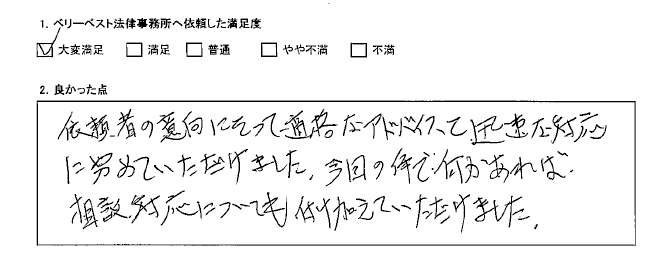 1. ベリーベスト法律事務所へ依頼した満足度
大変満足 満足 普通 やや不満 不満
2. 良かった点
依頼者の意向にそって適格なアドバイスと迅速な対応
に努めていただけました。今回の件で何かあれば
相談対応についても付け加えていただけました。